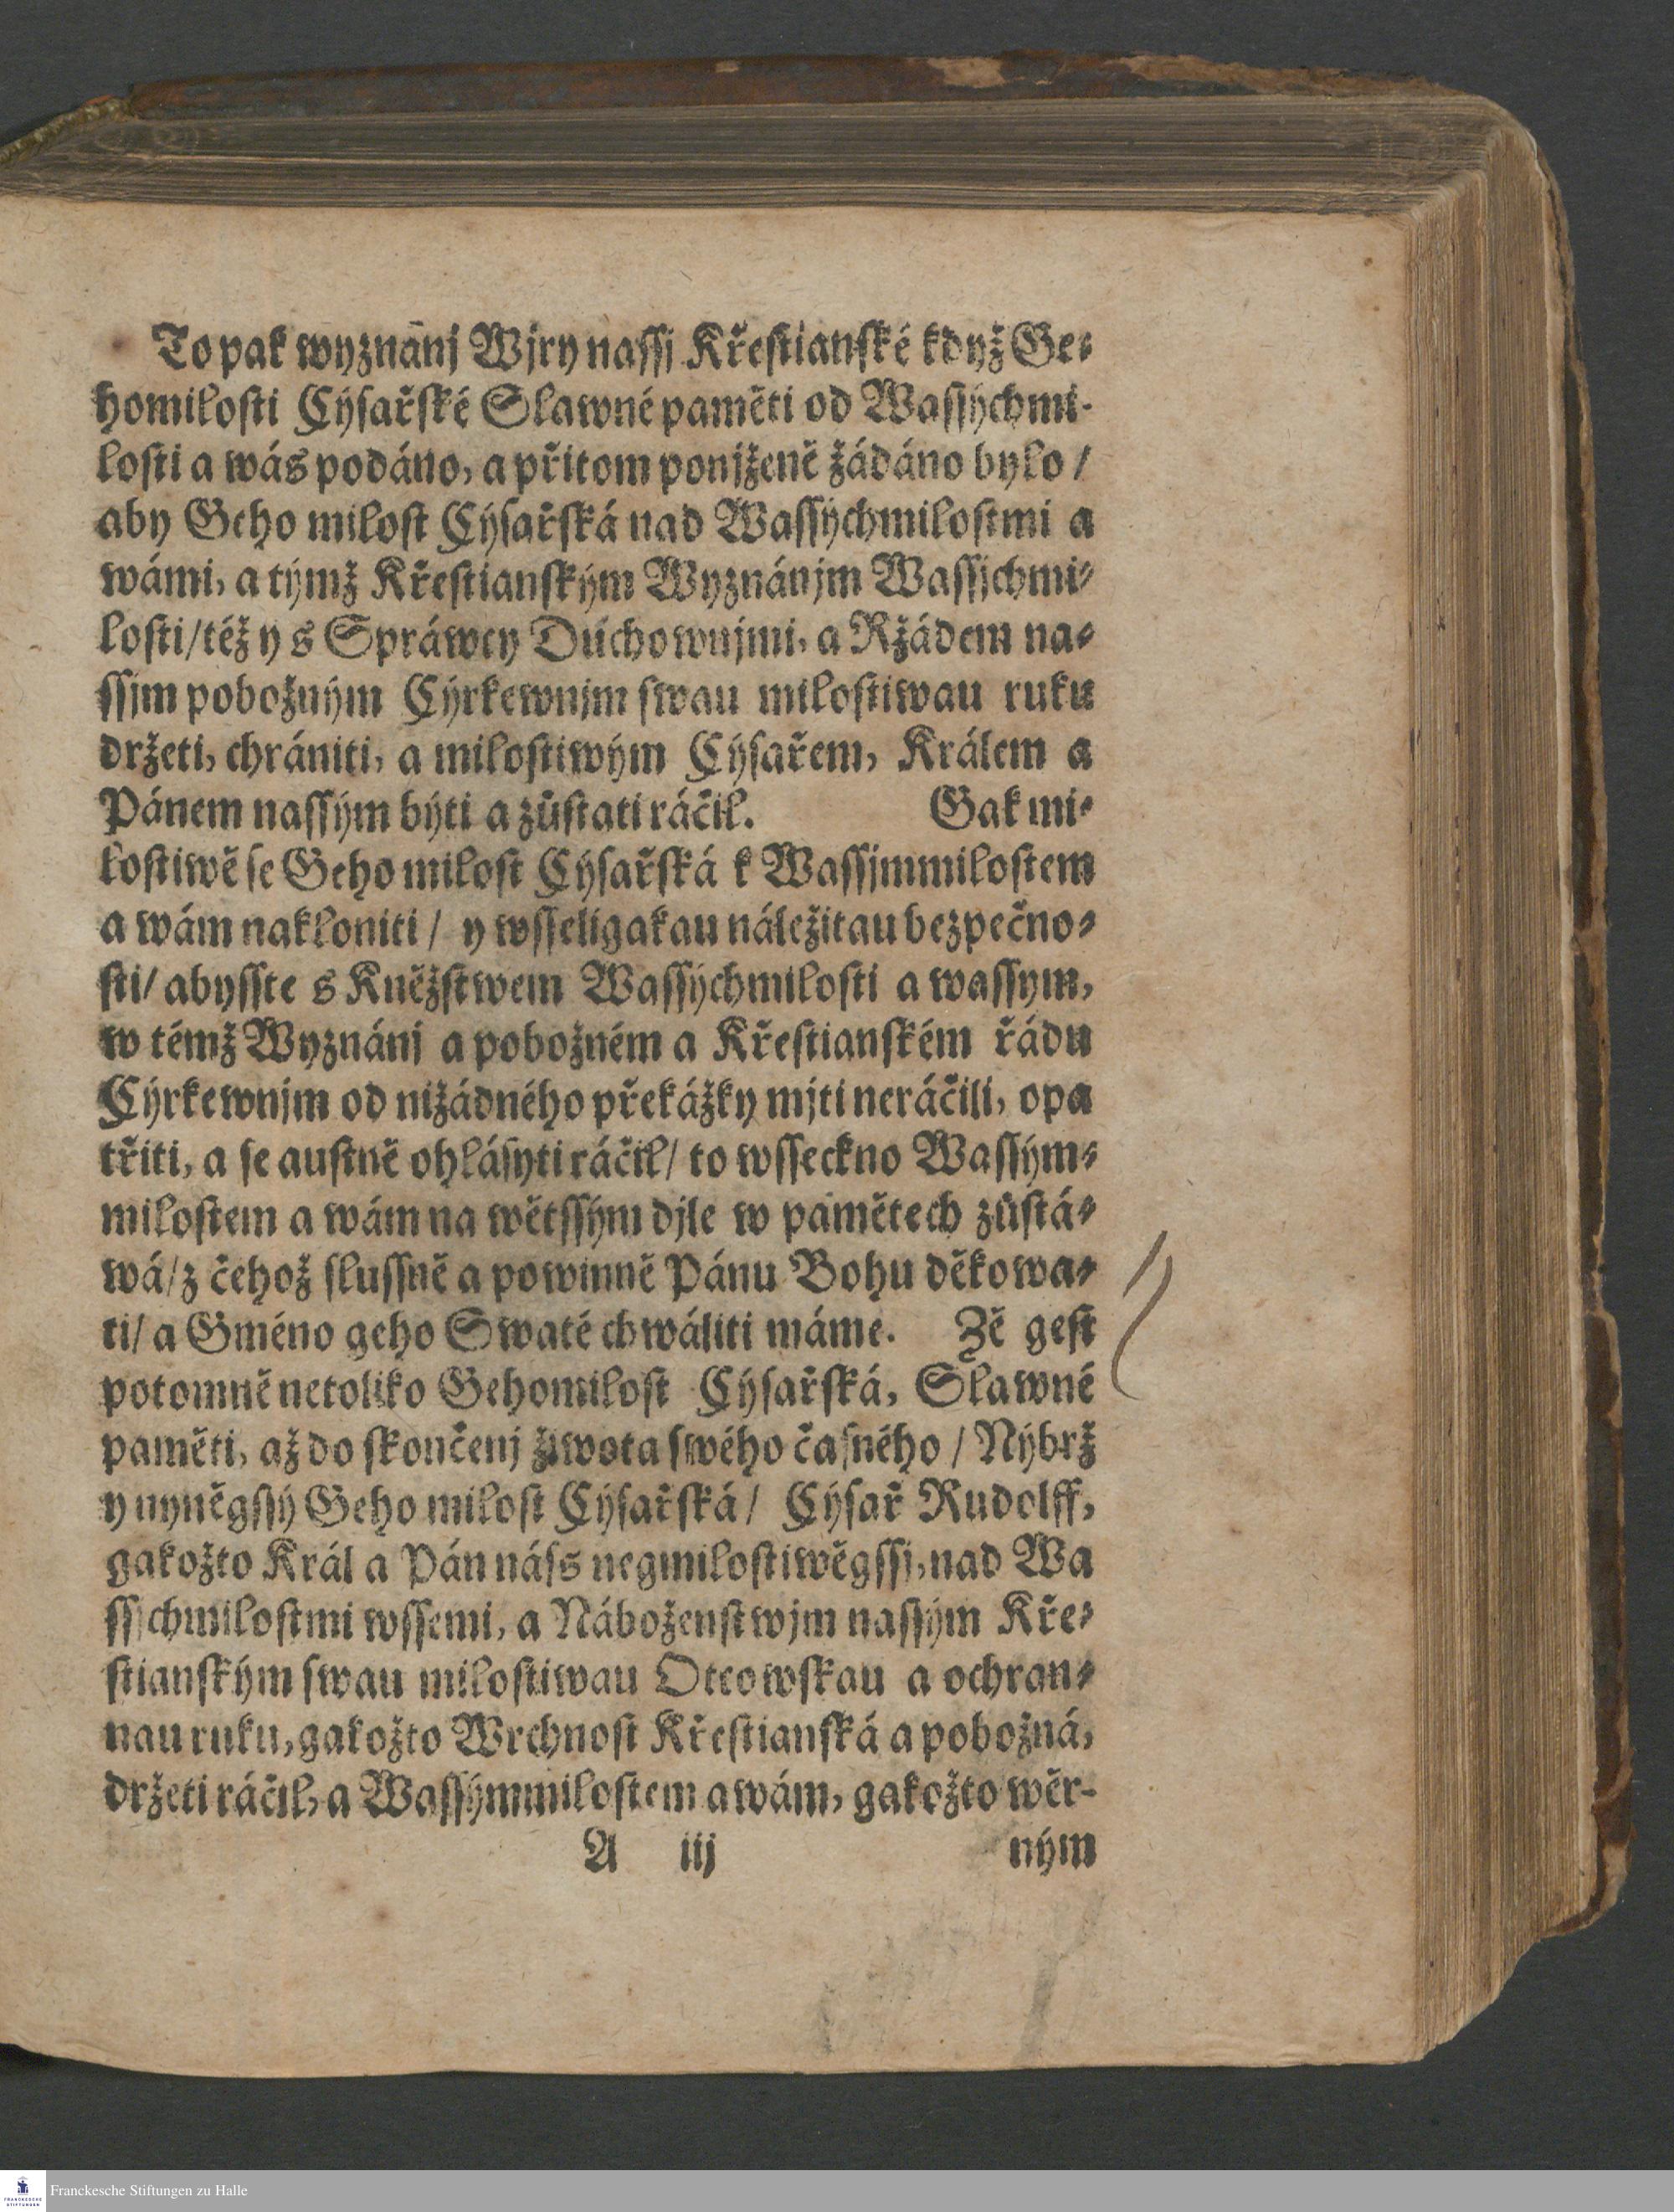 To pak wyznánj Wjry nassj Křestianské když Ge-
homilosti Cýsařské Slawné paměti od Wassýchmi-
losti a wás podáno, a přitom ponjženě žádáno bylo /
aby Geho milost Cýsařská nad Wassýchmilostmi a
wámi, a týmž Křestianským Wyznánjm Wassjchmi-
losti/též y s Spráwcy Duchownjmi, a Ržádem na-
ssjm pobožným Cýrkewnjm swau milostiwau ruku
držeti, chrániti, a milostiwým Cýsařem, Králem a
Pánem nassým býti a zůstati ráčil. Gak mi-
lostiwě se Geho milost Cýsařská k Wassjmmilostem
a wám nakloniti / y wsseligakau náležitau bezpečno-
sti/ abysste s Kněžstwem Wassýchmilosti a wassym,
w témž Wyznánj a pobožném a Křestianském řádu
Cýrkewnjm od nižádného překážky mjti neráčili, opa
třiti, a se austně ohlásyti ráčil/ to wsseckno Wassým-
milostem a wám na wětssým djle w pamětech zůstá-
wá/z čehož slussně a powinně Pánu Bohu děkowa-
ti/ a Gméno geho Swaté chwáliti máme. Zě gest
potomně netoliko Gehomilost Cýsařská, Slawné
paměti, až do skončenj žiwota swého časného / Nýbrž
y nyněgssý Geho milost Cýsařská/ Cýsař Rudolff,
gakožto Král a Pán náss negmilostiwěgssj, nad Wa
ssjchmilostmi wssemi, a Náboženstwjm nassým Kře-
stianským swau milostiwau Otcowskau a ochran-
nau ruku, gakožto Wrchnost Křestianská a pobožná,
držeti ráčil, a Wassýmmilostem a wám, gakožto wěr-
A iij ným
Franckesche Stiftungen zu Halle
FRANCKESCHE
STIFTUNGEN